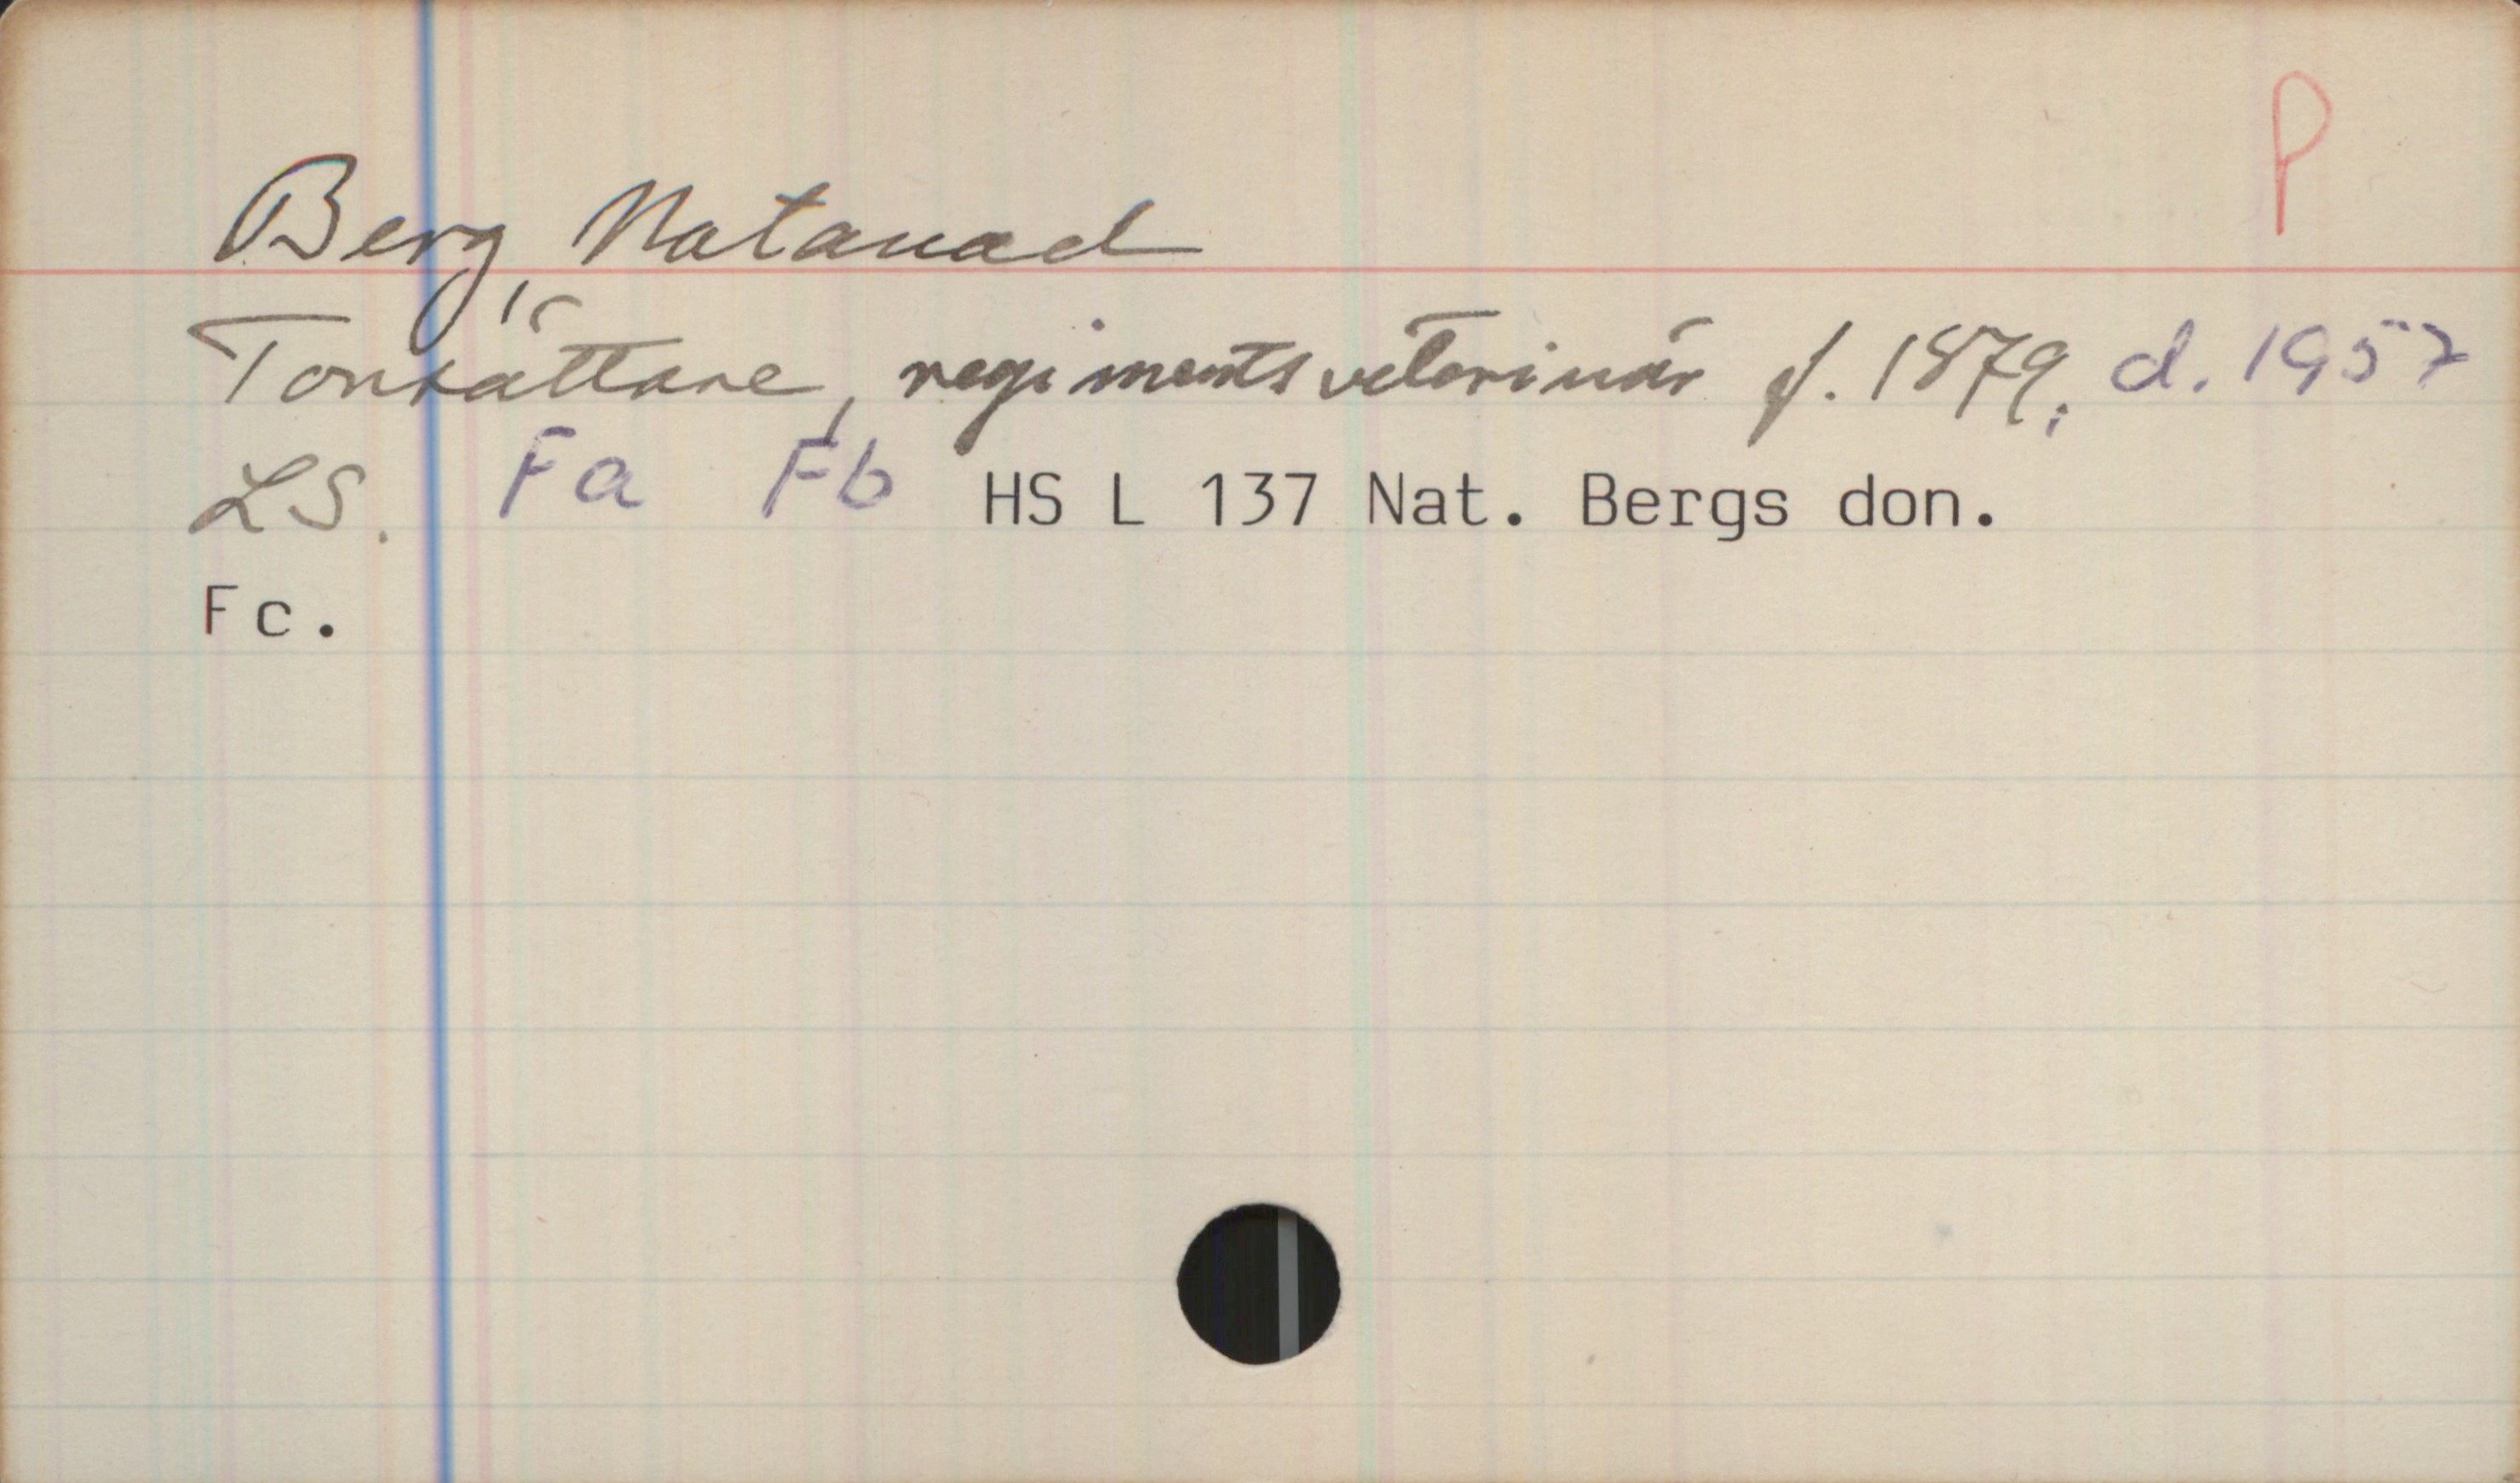 P
Berg, Natanael
Tonsättare, regimentsveterinär f. 1879, d. 1957
LS. Fa Fb HS L 137 Nat. Bergs don.
Fc.